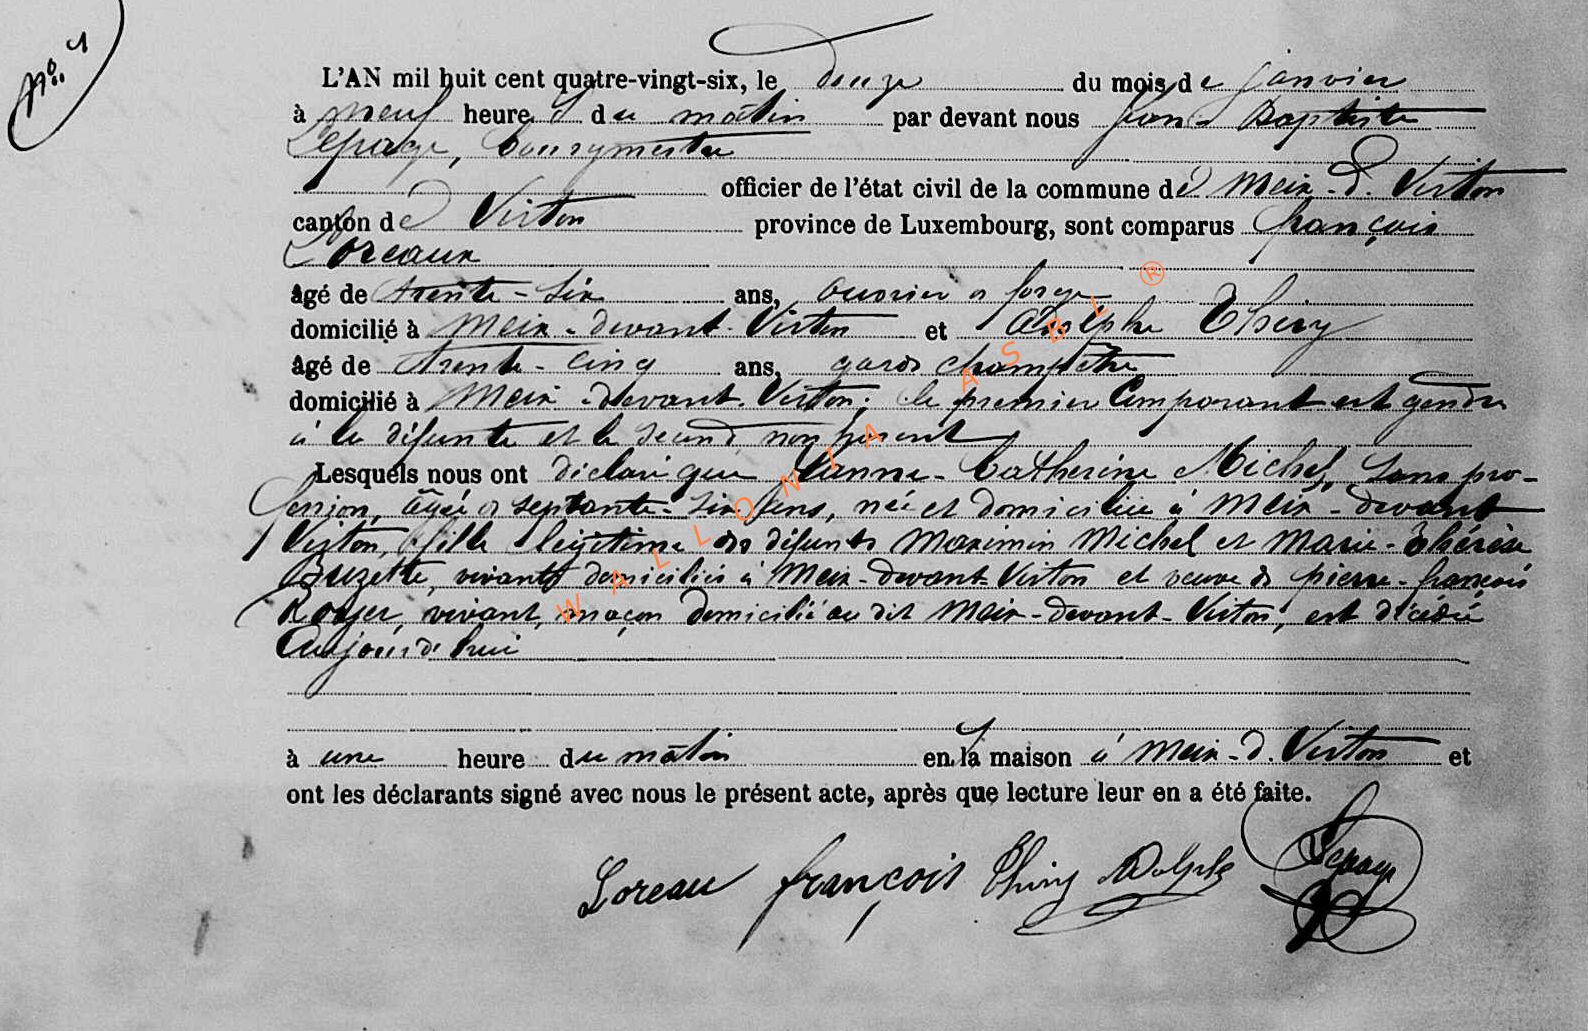 No. 1
L'AN mil huit cent quatre-vingt-six, le douze du mois de janvier
à neuf heures du matin par devant nous Jean-Baptiste
Lepage, bourgmestre
officier de l'état civil de la commune de Meix-d. Virton
canton de Virton province de Luxembourg, sont comparus françois
Loreaux
âgé de trente-six ans, ouvrier de forge
domicilié à Meix-devant-Virton et Adolphe Thiry
âgé de trente-cinq ans, garde champêtre
domicilié à Meix-devant-Virton; le premier Comparant est gendre
à la défunte et le second non parent
Lesquels nous ont déclaré que Jeanne-Catherine Michel, sans pro-
fession, âgée de septante-six ans, née et domiciliée à Meix-devant
Virton, fille légitime des défunts Maximin Michel et Marie-Thérèse
Buzette, vivants domiciliés à Meix-devant-Virton et veuve de pierre-françois
Royer, vivant, maçon domicilié au dit Meix-devant-Virton, est décédée
Aujourd'hui
à une heure du matin en la maison à Meix-d. Virton et
ont les déclarants signé avec nous le présent acte, après que lecture leur en a été faite.
Loreau françois Thiry Adolphe Lepage
WALLONIA ASBL ®